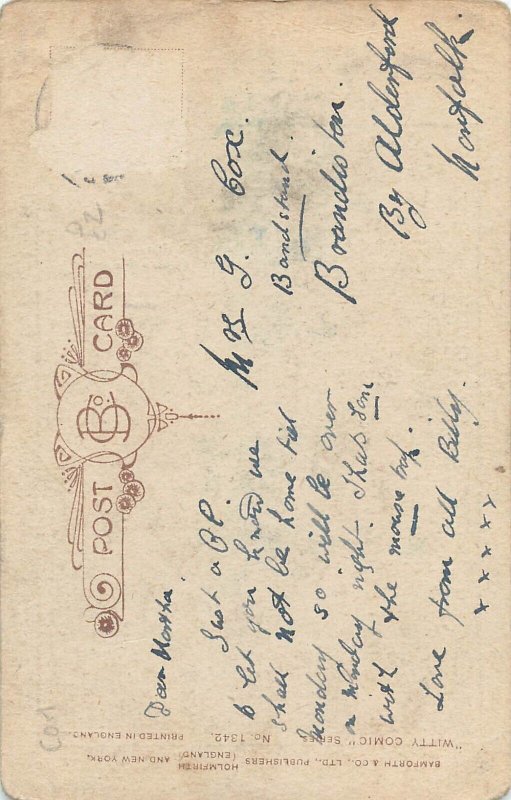 POST CARD
B & Co.
Dear Martha.
Just a P.C.
to let you know we
shall not be home till
Monday so will be over
on Monday night.
with the mouse trap.
Love from all Billy.
x x x x x
Mrs G. Cox.
Bandstand.
Brandiston.
By Alderford
Norfolk.
BAMFORTH & CO., LTD., PUBLISHERS
HOLMFIRTH
(ENGLAND)
AND NEW YORK.
"WITTY COMIC" SERIES
No. 1342.
PRINTED IN ENGLAND.